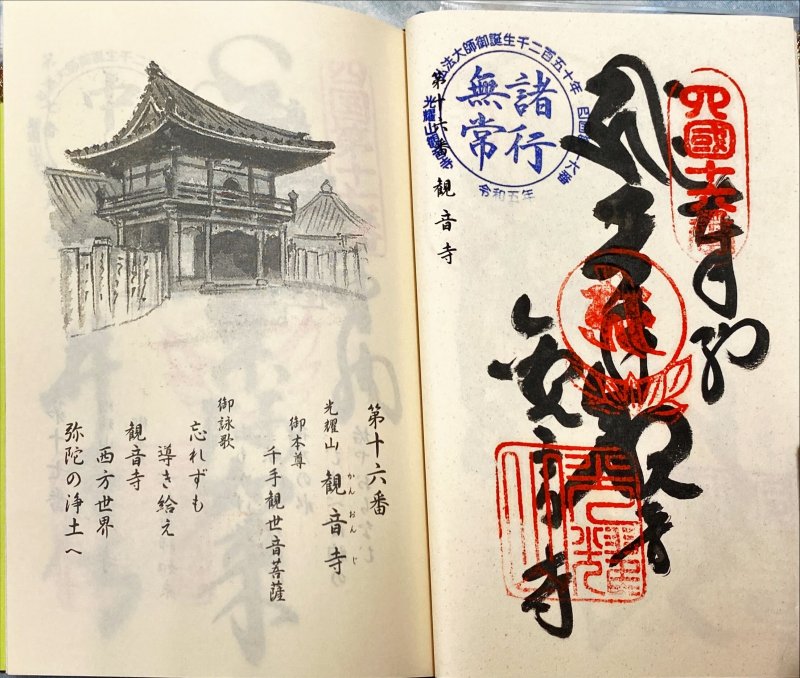 四國十六番
奉納
千手観音
観音寺
法大師御誕生千二百五十年
諸行
無常
令和五年
第十六番 観音寺
第十六番
光耀山 観音寺
かんおんじ
御本尊
千手観世音菩薩
御詠歌
忘れずも
導き給え
観音寺
西方世界
弥陀の浄土へ